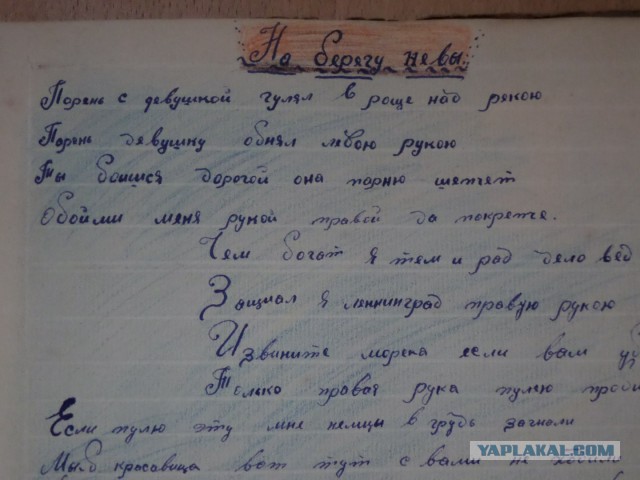 На берегу невы.
Порень с девушкой гулял в роще над рякою
Порень дявушку обнял лквою рукою
Ты боишся дорогой она порню шепчет
Обойми меня рукой правой да покрепче.
Чем богат я тем и рад дело вед
Защищал я леннинград правую рукою
Извините моряка если вам
Только правая рука пулею проби
Если пулю эту мне немцы в грудь загнали
Мыб красавица вот тут с вами не
YAPLAKAL.COM